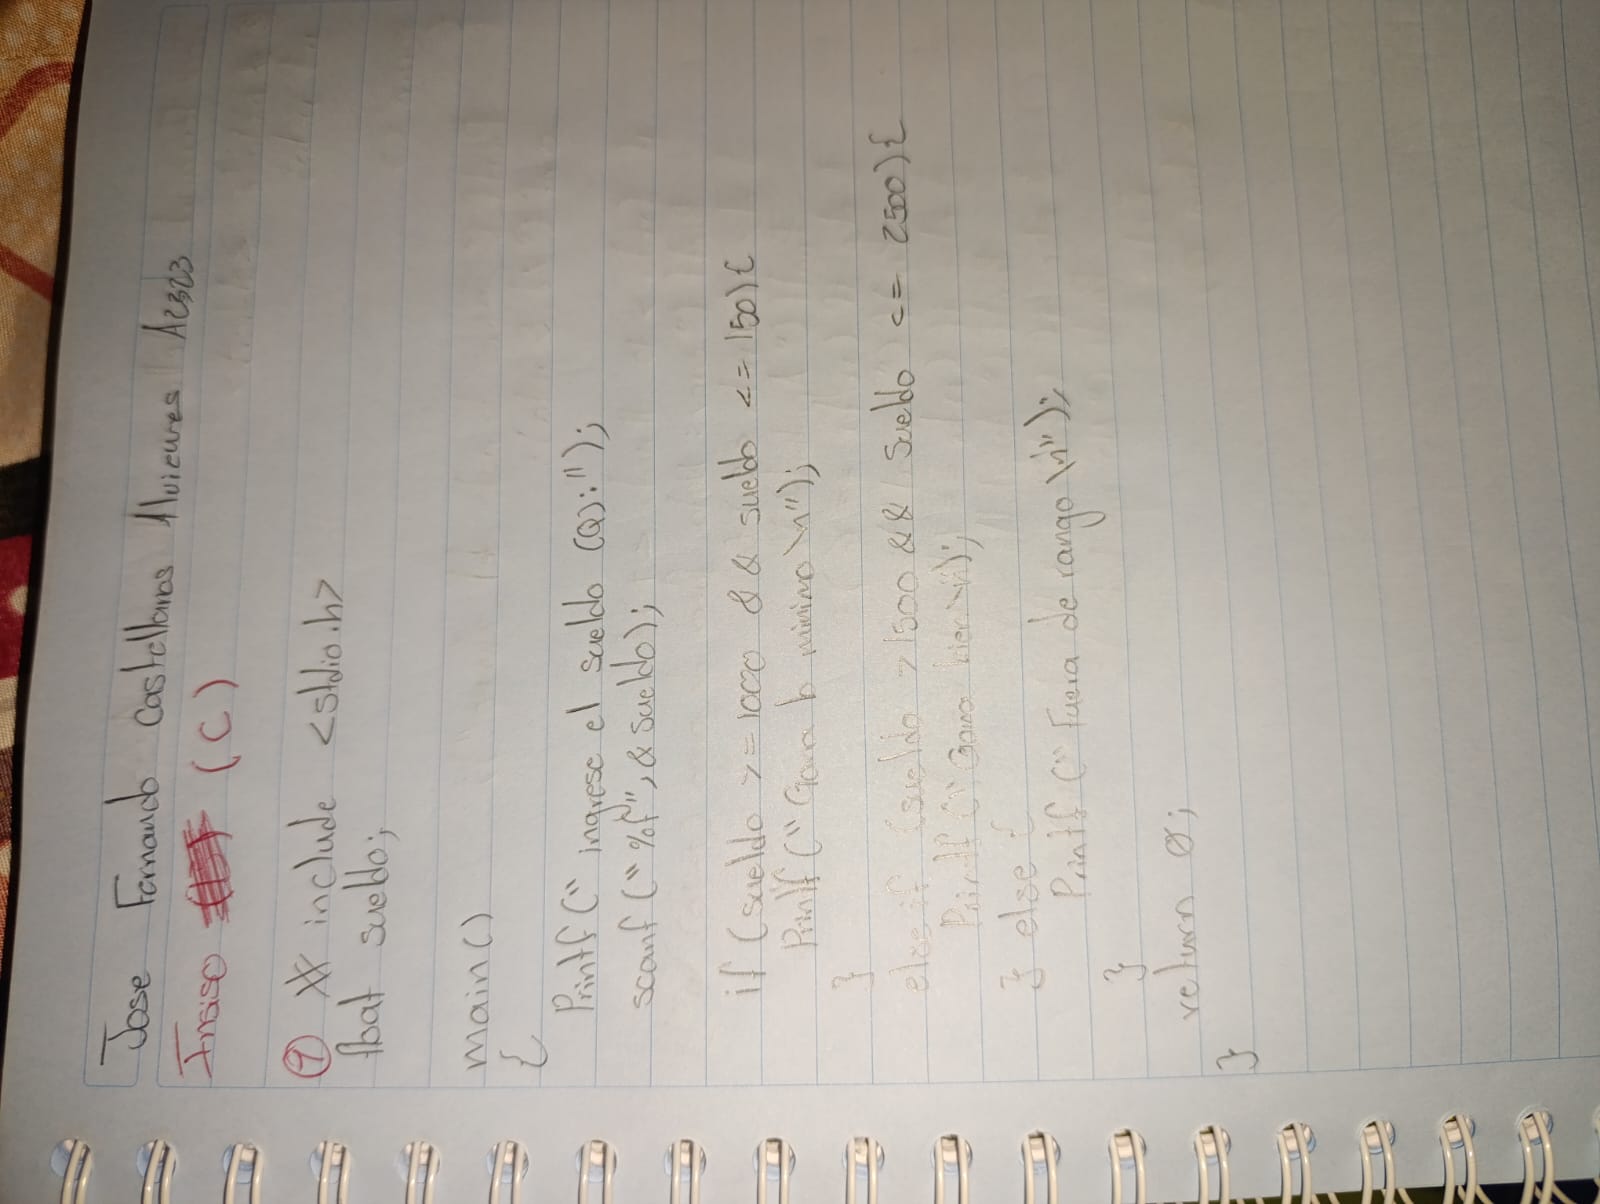 Jose Fernando Castellanos Alvizures A2323
Insiso (C)
9 # include <stdio.h>
float sueldo;
main()
{
Printf (" ingrese el sueldo (Q):");
scanf (" %f", & sueldo);
if (sueldo >= 1000 && sueldo <= 150) {
Printf (" Gana lo minimo \n");
}
else if (sueldo > 1500 && sueldo <= 2500) {
Printf (" Gana bien \n");
} else {
Printf (" Fuera de rango \n");
}
return 0;
}